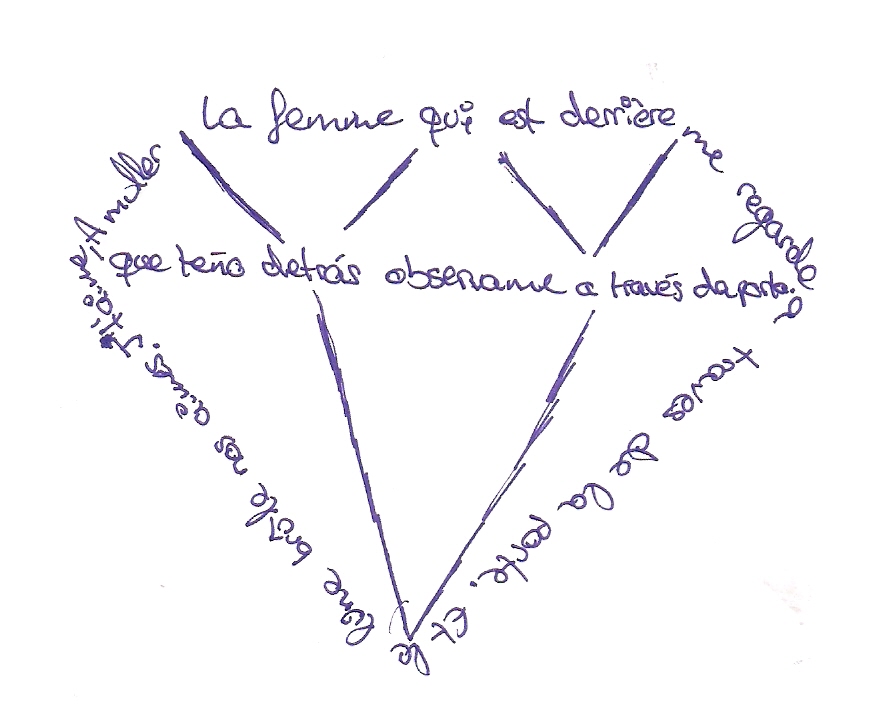 La femme qui est derrière
me regarde a
traves de la porte. Et
lune brûle nos
A muller
que teño detrás observame a través da porta.